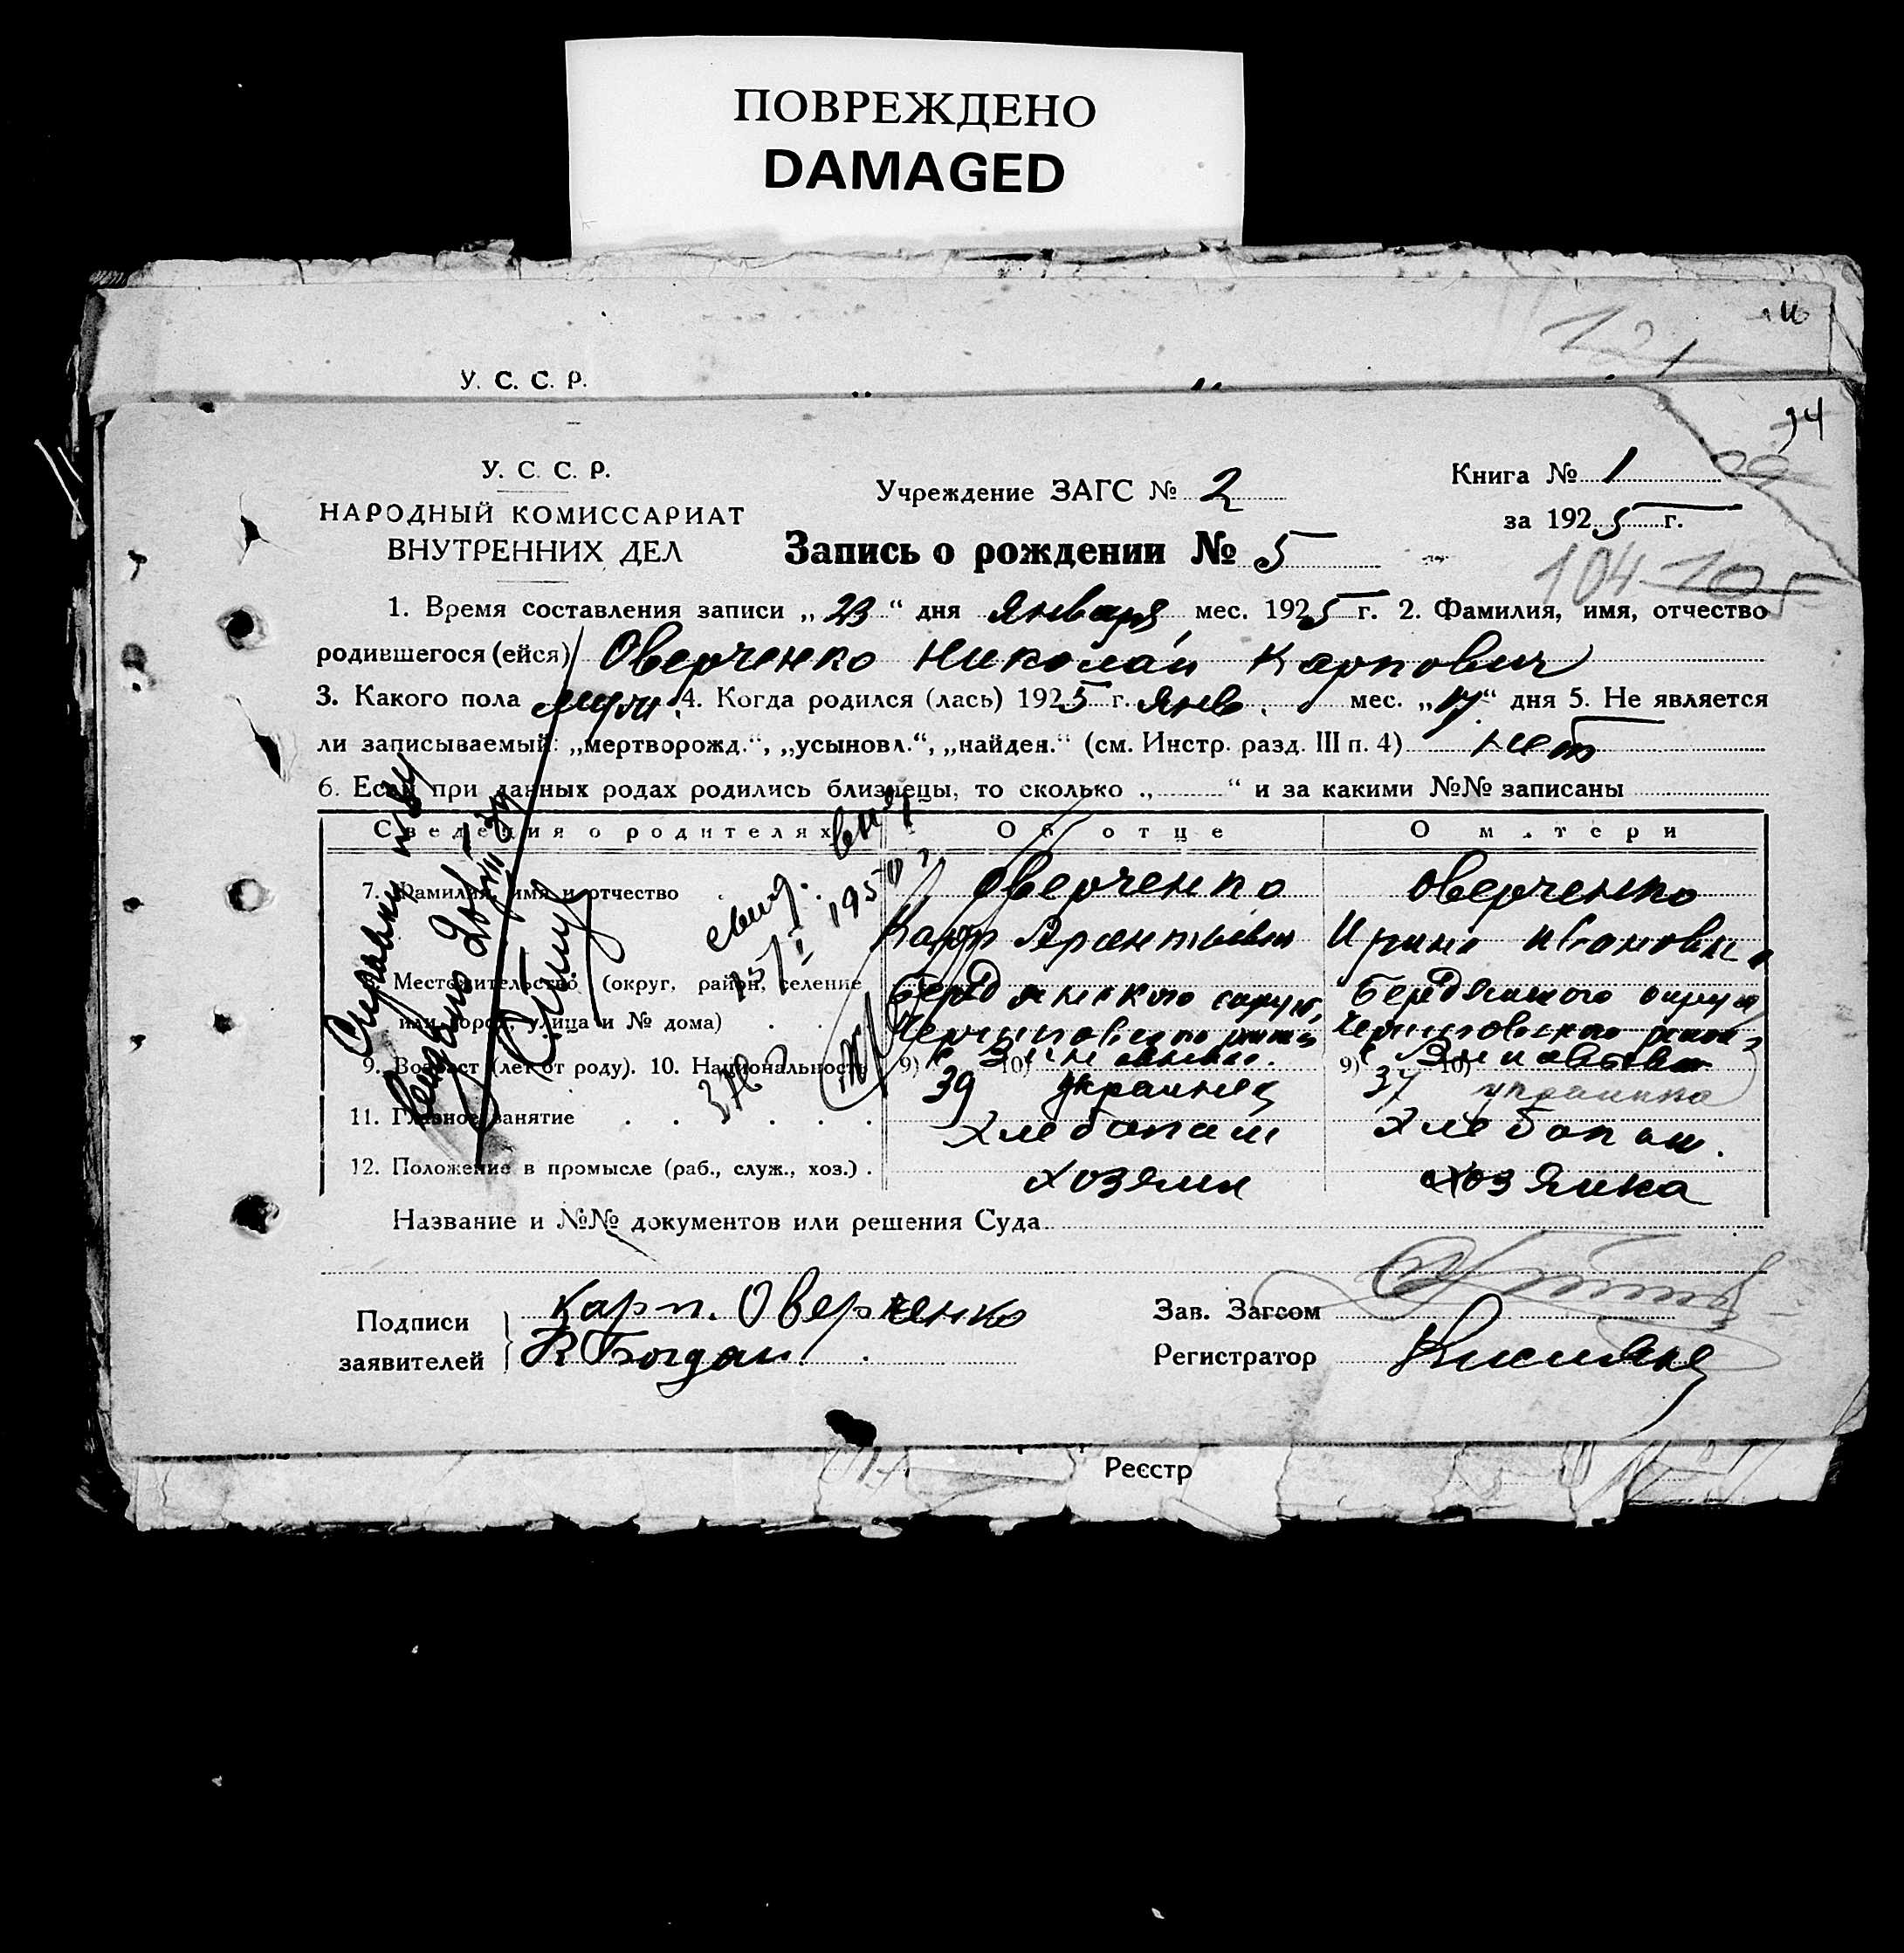 ПОВРЕЖДЕНО
DAMAGED
У. С. С. Р.
121
94
У. С. С. Р.
НАРОДНЫЙ КОМИССАРИАТ
ВНУТРЕННИХ ДЕЛ
Учреждение ЗАГС № 2
Книга № 1
за 1925 г.
Запись о рождении № 5
104 105
1. Время составления записи „23“ дня Января мес. 1925 г. 2. Фамилия, имя, отчество
родившегося (ейся) Оверченко Николай Карпович
3. Какого пола муж. 4. Когда родился (лась) 1925 г. Янв. мес. „17“ дня 5. Не является
ли записываемый: „мертворожд.“, „усыновл.“, „найден.“ (см. Инстр. разд. III п. 4) нет
6. Если при данных родах родились близнецы, то сколько „ “ и за какими №№ записаны
Сведения о родителях Об отце О матери
7. Фамилия, имя и отчество Оверченко Оверченко
Карп Ирина Ивановна
8. Местожительство (округ, район, селение Бердянского округа, Бердянского округа
или город, улица и № дома)
9. Возраст (лет от роду). 10. Национальность 9) 39 10) украинец 9) 37 10) украинка
11. Главное занятие Хлебопаш Хлебопаш.
12. Положение в промысле (раб., служ., хоз.) хозяин хозяйка
свид. 1950
Название и №№ документов или решения Суда
Подписи заявителей Карп. Оверченко
Богдан
Зав. Загсом
Регистратор
Реєстр